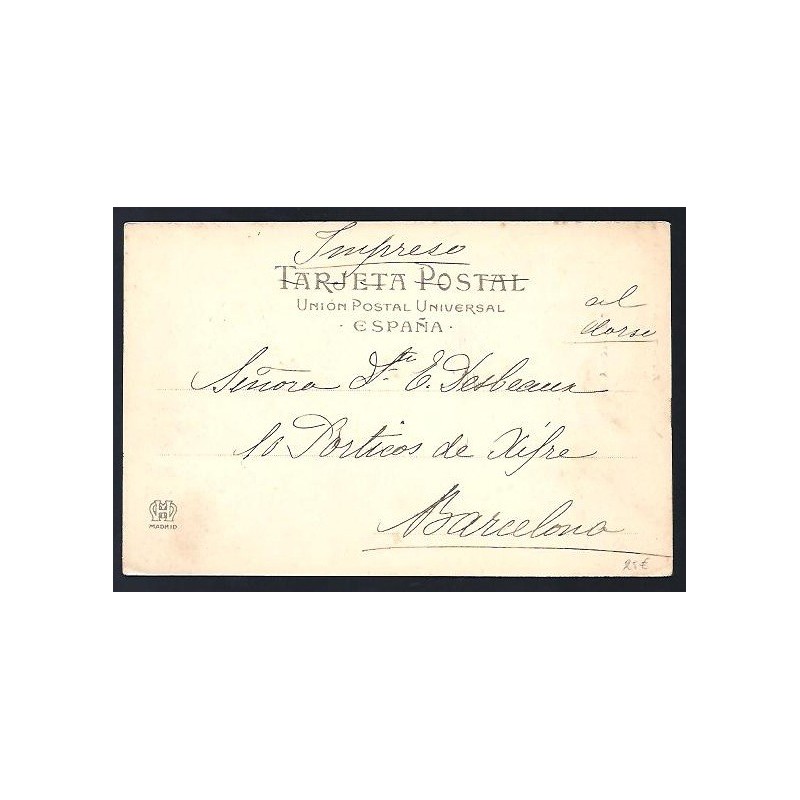 Impreso
TARJETA POSTAL
UNIÓN POSTAL UNIVERSAL
· ESPAÑA ·
al
dorso
Señora Dña E. Desbeaux
10 Porticos de Xifre
Barcelona
MADRID
25€